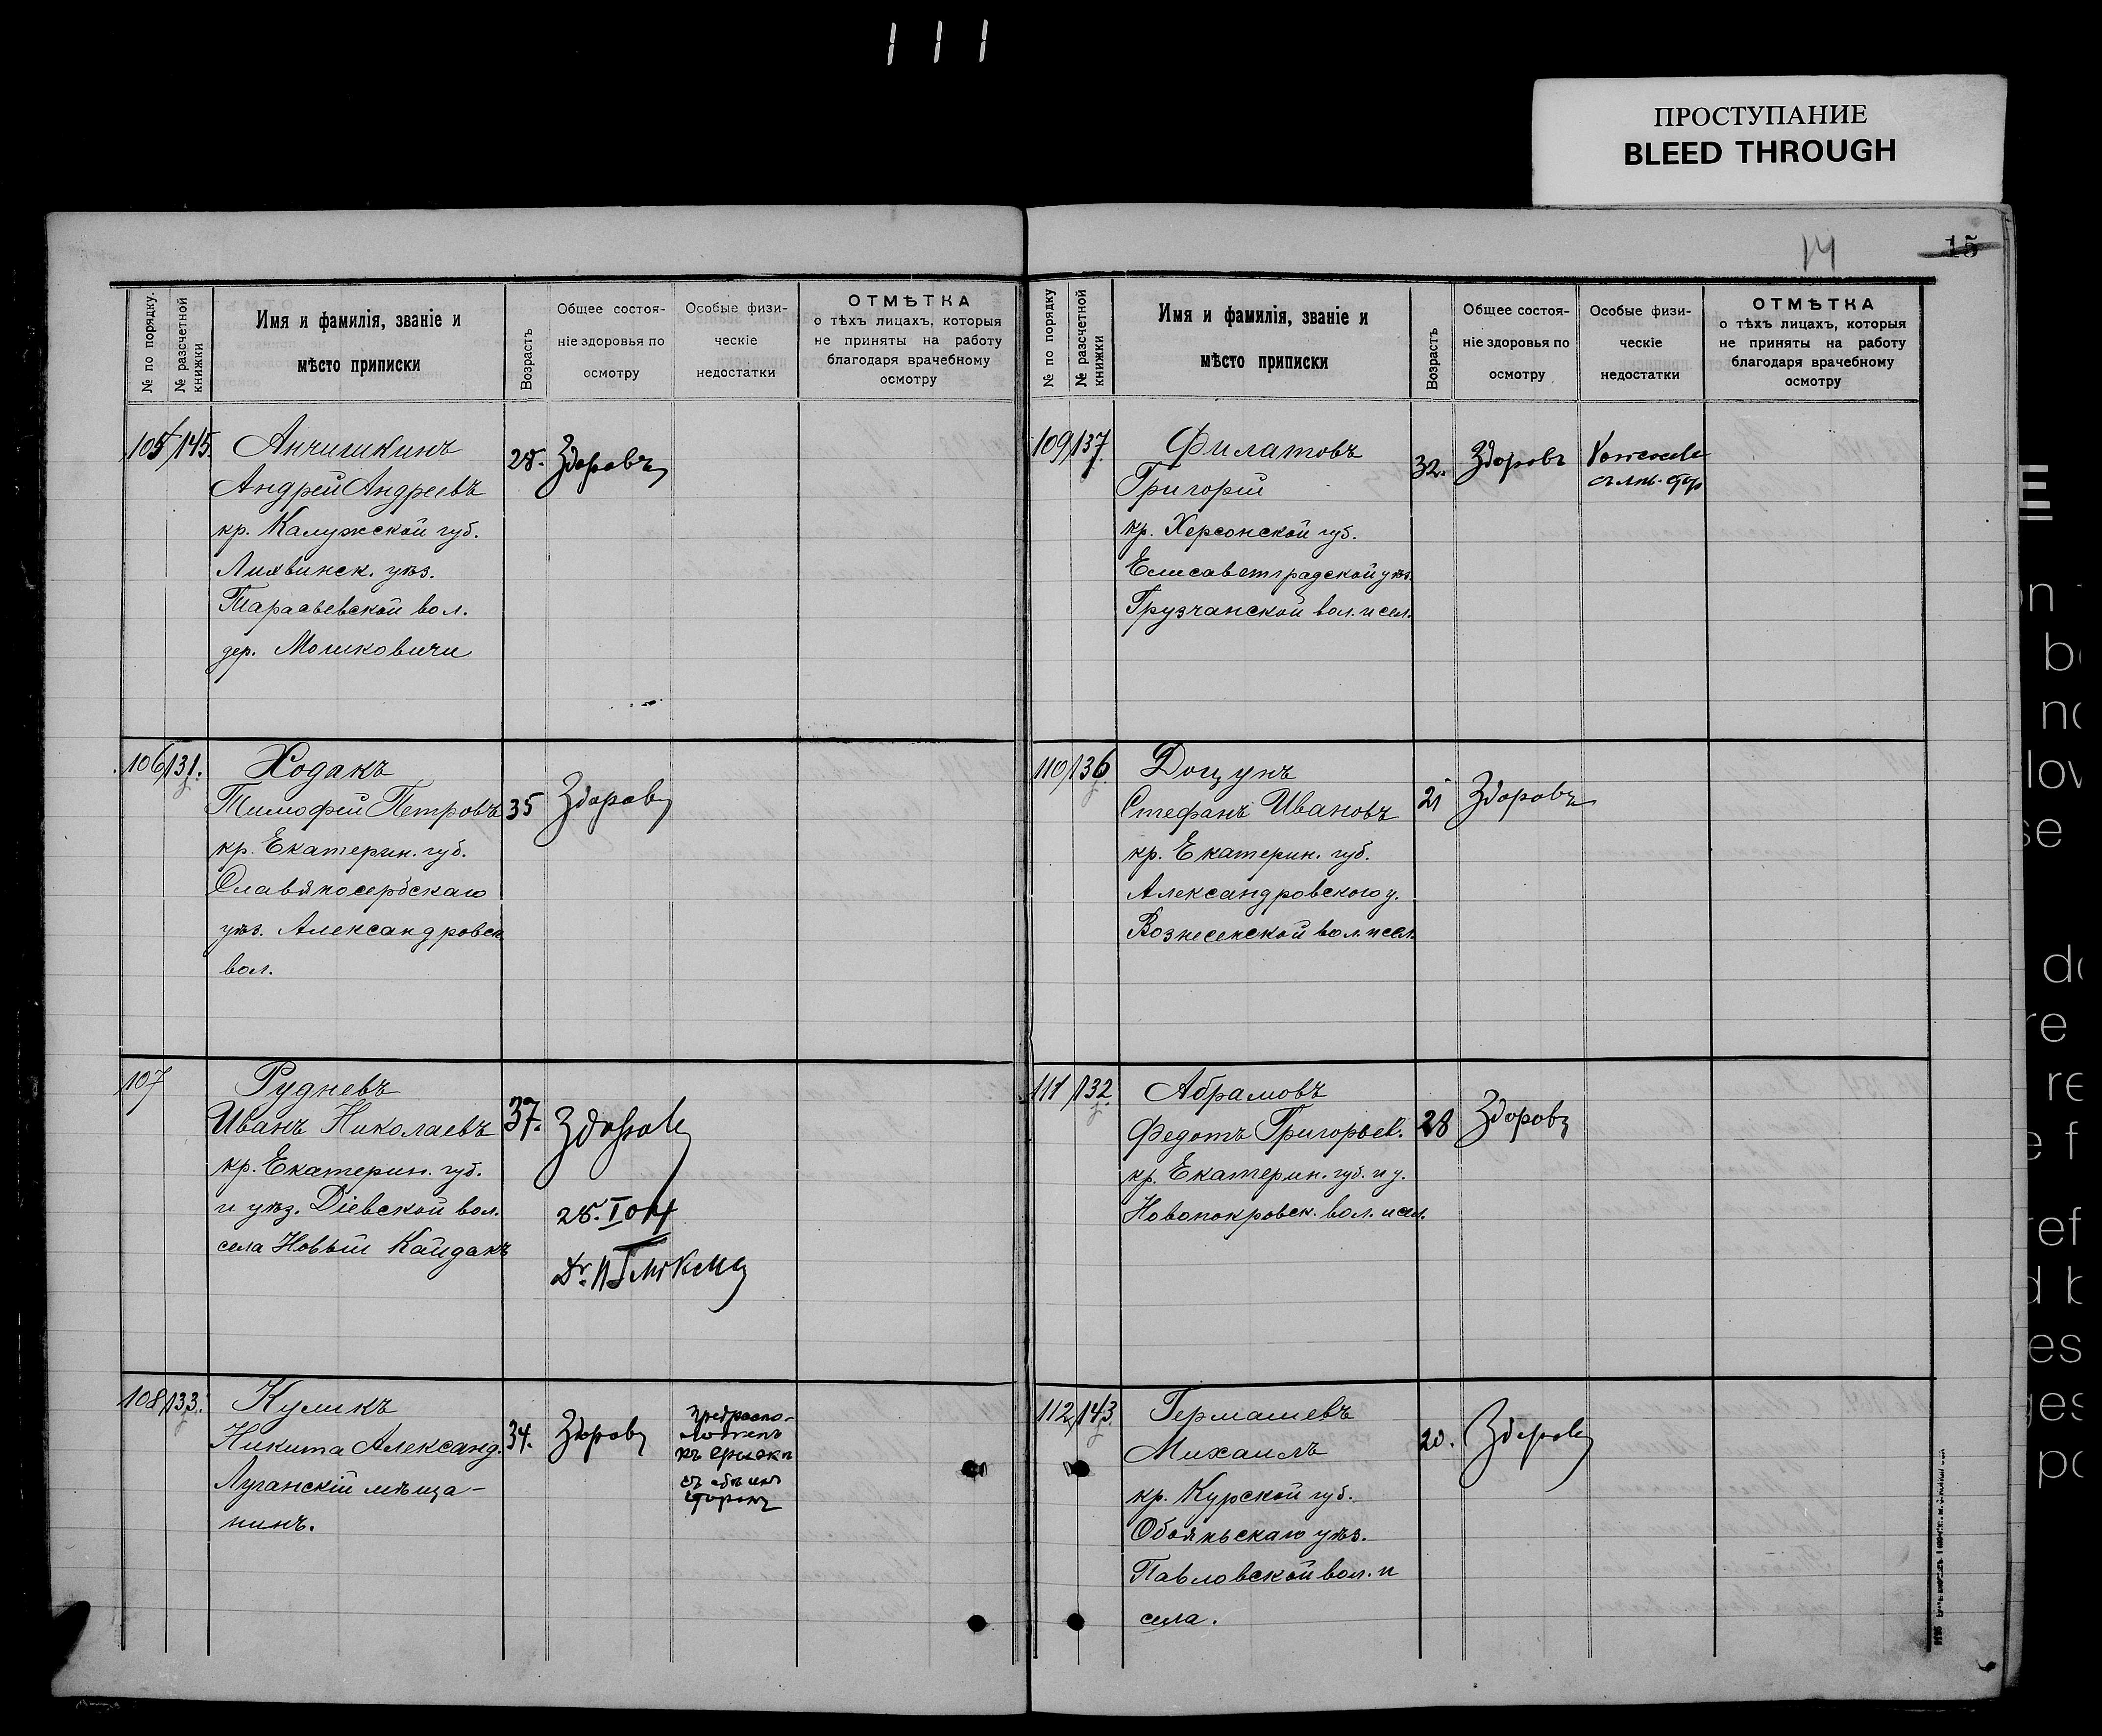 111
ПРОСТУПАНИЕ
BLEED THROUGH
№ по порядку.
№ разсчетной книжки
Имя и фамилія, званіе и
мѣсто приписки
Возрастъ
Общее состоя-
ніе здоровья по
осмотру
Особые физи-
ческіе
недостатки
ОТМѢТКА
о тѣхъ лицахъ, которыя
не приняты на работу
благодаря врачебному
осмотру
105 145. Анчишкинъ
Андрей Андреевъ 28. Здоровъ
кр. Калужской губ.
Лихвинск. уѣз.
Тарасьевской вол.
дер. Мошковичи
106 131. Ходакъ
Тимофей Петровъ 35 Здоровъ
кр. Екатерин. губ.
Славяносербскаго
уѣз. Александровск
вол.
107 Рудневъ
Иванъ Николаевъ 37. Здоровъ
кр. Екатерин. губ.
и уѣз. Діевской вол.
села Новый Кайдакъ
28. I 04
Dr.
108 133. Куликъ
Никита Александ. 34. Здоровъ
Луганскій мѣща-
нинъ.
предраспо-
ложенъ
къ грыжѣ
съ обѣихъ
сторонъ
14 15
№ по порядку
№ разсчетной книжки
Имя и фамилія, званіе и
мѣсто приписки
Возрастъ
Общее состоя-
ніе здоровья по
осмотру
Особые физи-
ческіе
недостатки
ОТМѢТКА
о тѣхъ лицахъ, которыя
не приняты на работу
благодаря врачебному
осмотру
109 137. Филатовъ
Григорій 32. Здоровъ
кр. Херсонской губ.
Елисаветградской уѣз.
Грузчанской вол. и сел.
110 136. Доцунъ
Стефанъ Ивановъ 21 Здоровъ
кр. Екатерин. губ.
Александровского у.
Вознесенской вол. и сел.
111 132. Абрамовъ
Федотъ Григорьев. 28 Здоровъ
кр. Екатерин. губ. и у.
Новопокровск. вол. и сел.
112 143. Гермашевъ
Михаилъ 20. Здоровъ
кр. Курской губ.
Обояньскаго уѣз.
Павловской вол. и
села.